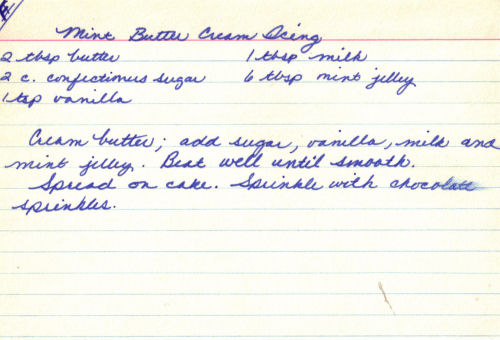 Mint Butter Cream Icing
2 tbsp butter 1 tbsp milk
2 c. confectioners sugar 6 tbsp mint jelley
1 tsp vanilla
Cream butter; add sugar, vanilla, milk and
mint jelley. Beat well until smooth.
Spread on cake. Sprinkle with chocolate
sprinkles.